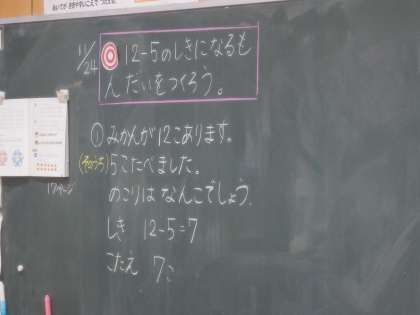 11/24
12-5のしきになるも
んだいをつくろう。
①みかんが12こあります。
(そのうち)5こたべました。
のこりはなんこでしょう。
しき 12-5=7
こたえ 7こ